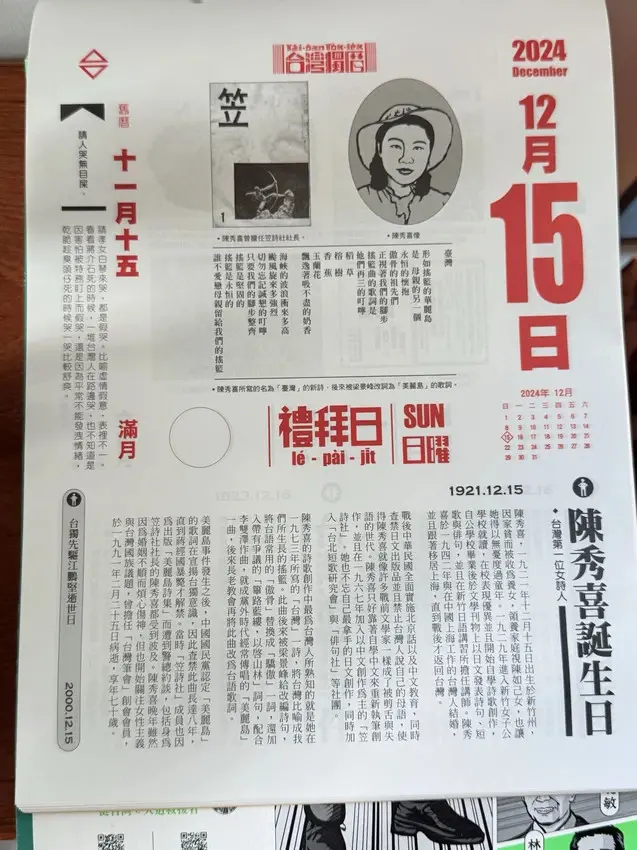 Tâi-oân To̍k-le̍k
台灣獨曆
2024
December
12月
15日
舊曆
十一月十五
滿月
請人哭無目屎。
請孝女白琴來哭，都是假哭。比喻虛情假意，表裡不一。
看看蔣介石死的時候，一堆台灣人在路邊哭，也不知道是
因害怕被特務盯上而假哭，還是因為平常不能發洩情緒，
乾脆趁臭頭仔死的時候哭一哭比較舒爽。
笠
1
•陳秀喜曾擔任笠詩社社長。
•陳秀喜像
臺灣
形如搖籃的華麗島
是 母親的另一個
永恒的懷抱
傲骨的祖先們
正視著我們的腳步
搖籃曲的歌詞是
他們再三的叮嚀
稻草
榕樹
香蕉
玉蘭花
飄逸著吸不盡的奶香
海峽的波浪衝來多高
颱風旋來多強烈
切勿忘記誠懇的叮嚀
只要我們的腳步整齊
搖籃是堅固的
搖籃是永恒的
誰不愛戀母親留給我們的搖籃
•陳秀喜所寫的名為「臺灣」的新詩，後來被梁景峰改詞為「美麗島」的歌詞。
禮拜日
lé - pài - ji̍t
SUN
日曜
2024年 12月
日 一 二 三 四 五 六
1 2 3 4 5 6 7
8 9 10 11 12 13 14
15 16 17 18 19 20 21
22 23 24 25 26 27 28
29 30 31
1921.12.15
陳秀喜誕生日
•台灣第一位女詩人
陳秀喜，一九二一年十二月十五日出生於新竹州，
因家貧而被收為養女，領養家庭視陳如己女，也讓
她得以無憂度過童年。一九二九年進入新竹女子公
學校就讀，在校表現優異並且開始自學詩歌創作，
自公學校畢業後於文學刊物上以日文發表詩句、短
歌與俳句，並且在新竹日語講習所擔任講師。陳秀
喜於一九四二年與在中國上海工作的台灣人結婚
並且跟著移居上海，直到戰後才返回台灣。
戰後中華民國全面實施北京話以及中文教育，同時
查禁日文出版品並且禁止台灣人說自己的母語，使
得陳秀喜就像許多戰前文學家一樣成了被剪舌與失
語的世代。陳秀喜只好靠著自學中文來重新執筆創
作，並且在一九六七年加入以中文創作為主的「笠
詩社」。她也不忘自己最拿手的日文創作，同時加
入「台北短歌研究會」與「俳句社」等社團。
陳秀喜的詩歌創作中最為台灣人所熟知的就是她在
一九七三年所寫的「台灣」詩，將台灣比喻成我
們所生長的搖籃，此曲後來被梁景峰給改編詩句，
將台語常用的「傲骨」替換成「驕傲」一詞，還加
入帶有爭議的「篳路藍縷，以啓山林」詞句，配合
李雙澤作曲，就成黨外時代經常傳唱的「美麗島」
一曲，後來長老教會再將此曲改為台語歌詞。
美麗島事件發生之後，中國國民黨認定「美麗島」
的歌詞在宣揚台獨意識，因此查禁此曲長達八年，
直到蔣經國暴斃才解禁。當時，「笠詩社」成員也因
為出版「美麗島詩集」而遭到警總約談，包括身為
笠詩社社長的陳秀喜都受到波及。陳秀喜晚年雖然
因為婚姻不順而煩心傷神，但也開始關注女性主義
與台灣國族議題，曾擔任「台灣筆會」創會會員，
於一九九一年二月二十五日病逝，享年七十歲。
台獨先驅江鵬堅逝世日
2000.12.15
敏
林